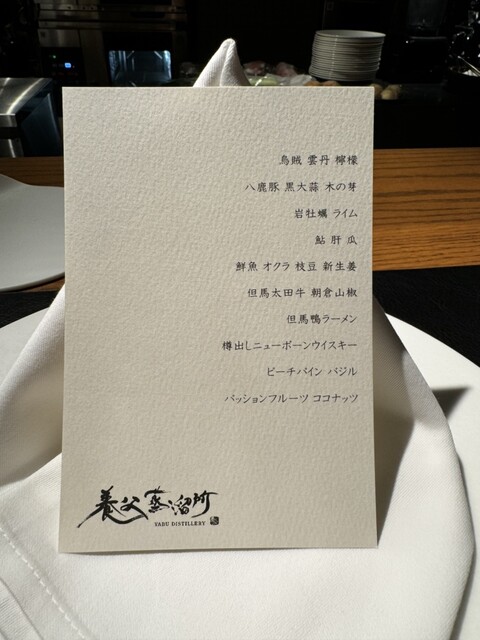 烏賊 雲丹 檸檬
八鹿豚 黒大蒜 木の芽
岩牡蠣 ライム
鮎 肝 瓜
鮮魚 オクラ 枝豆 新生姜
但馬太田牛 朝倉山椒
但馬鴨ラーメン
樽出しニューボーンウイスキー
ピーチパイン バジル
パッションフルーツ ココナッツ
養父蒸溜所
YABU DISTILLERY